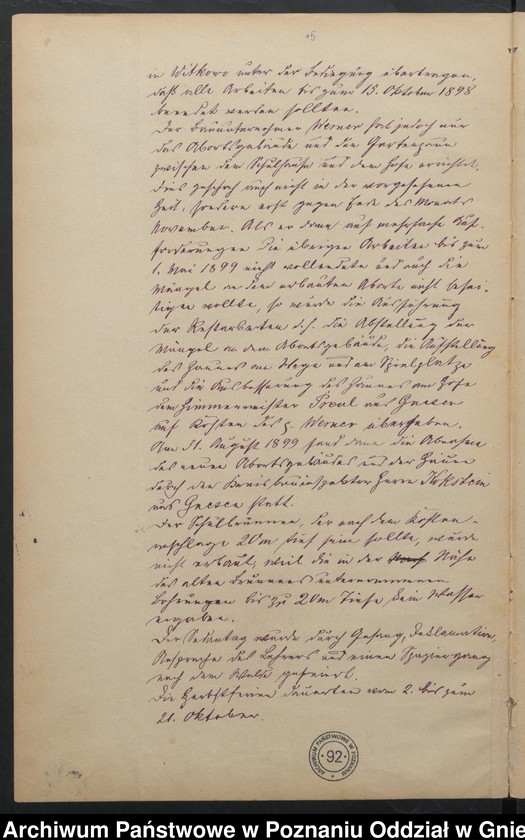 in Witkowo unter der Bedingung übertragen,
daß alle Arbeiten bis zum 15. Oktober 1898
beendet werden sollten.
Der Bauunternehmer Werner hat jedoch nur
das Abortgebäude und den Gartenzaun
zwischen dem Schulhause und dem Hofe errichtet.
Dies geschah auch nicht in der vorgesehenen
Zeit, sondern erst gegen Ende des Monats
November. Als er dann auf mehrfache Auf-
forderungen die übrigen Arbeiten bis zum
1. Mai 1899 nicht vollendete und auch die
Mängel an dem erbauten Aborte nicht besei-
tigen wollte, so wurde die Ausführung
der Restarbeiten d.h. die Abstellung der
Mängel an dem Abortsgebäude, die Aufstellung
des Zaunes am Wege und am Spielplatze
und die Ausbesserung des Zaunes am Hofe
dem Zimmermeister aus Gnesen
auf Kosten des p. Werner übergeben.
Am 31. August 1899 fand dann die Abnahme
des neuen Abortsgebäudes und der Zäune
durch den Kreisbauinspektor Herrn
aus Gnesen statt.
Der Schulbrunnen, der nach dem Kosten-
anschlage 20m tief sein sollte, wurde
nicht erbaut, weil die in der Nähe
des alten Brunnens unternommenen
Bohrungen bis zu 20m Tiefe kein Wasser
ergaben.
Der Sedantag wurde durch Gesang, Deklamation,
Ansprache des Lehrers und einen Spaziergang
nach dem Walde gefeiert.
Die Herbstferien dauerten vom 2. bis zum
21. Oktober.
ARCHIWUM PAŃSTWOWE W POZNANIU
92
Archiwum Państwowe w Poznaniu Oddział w Gnie